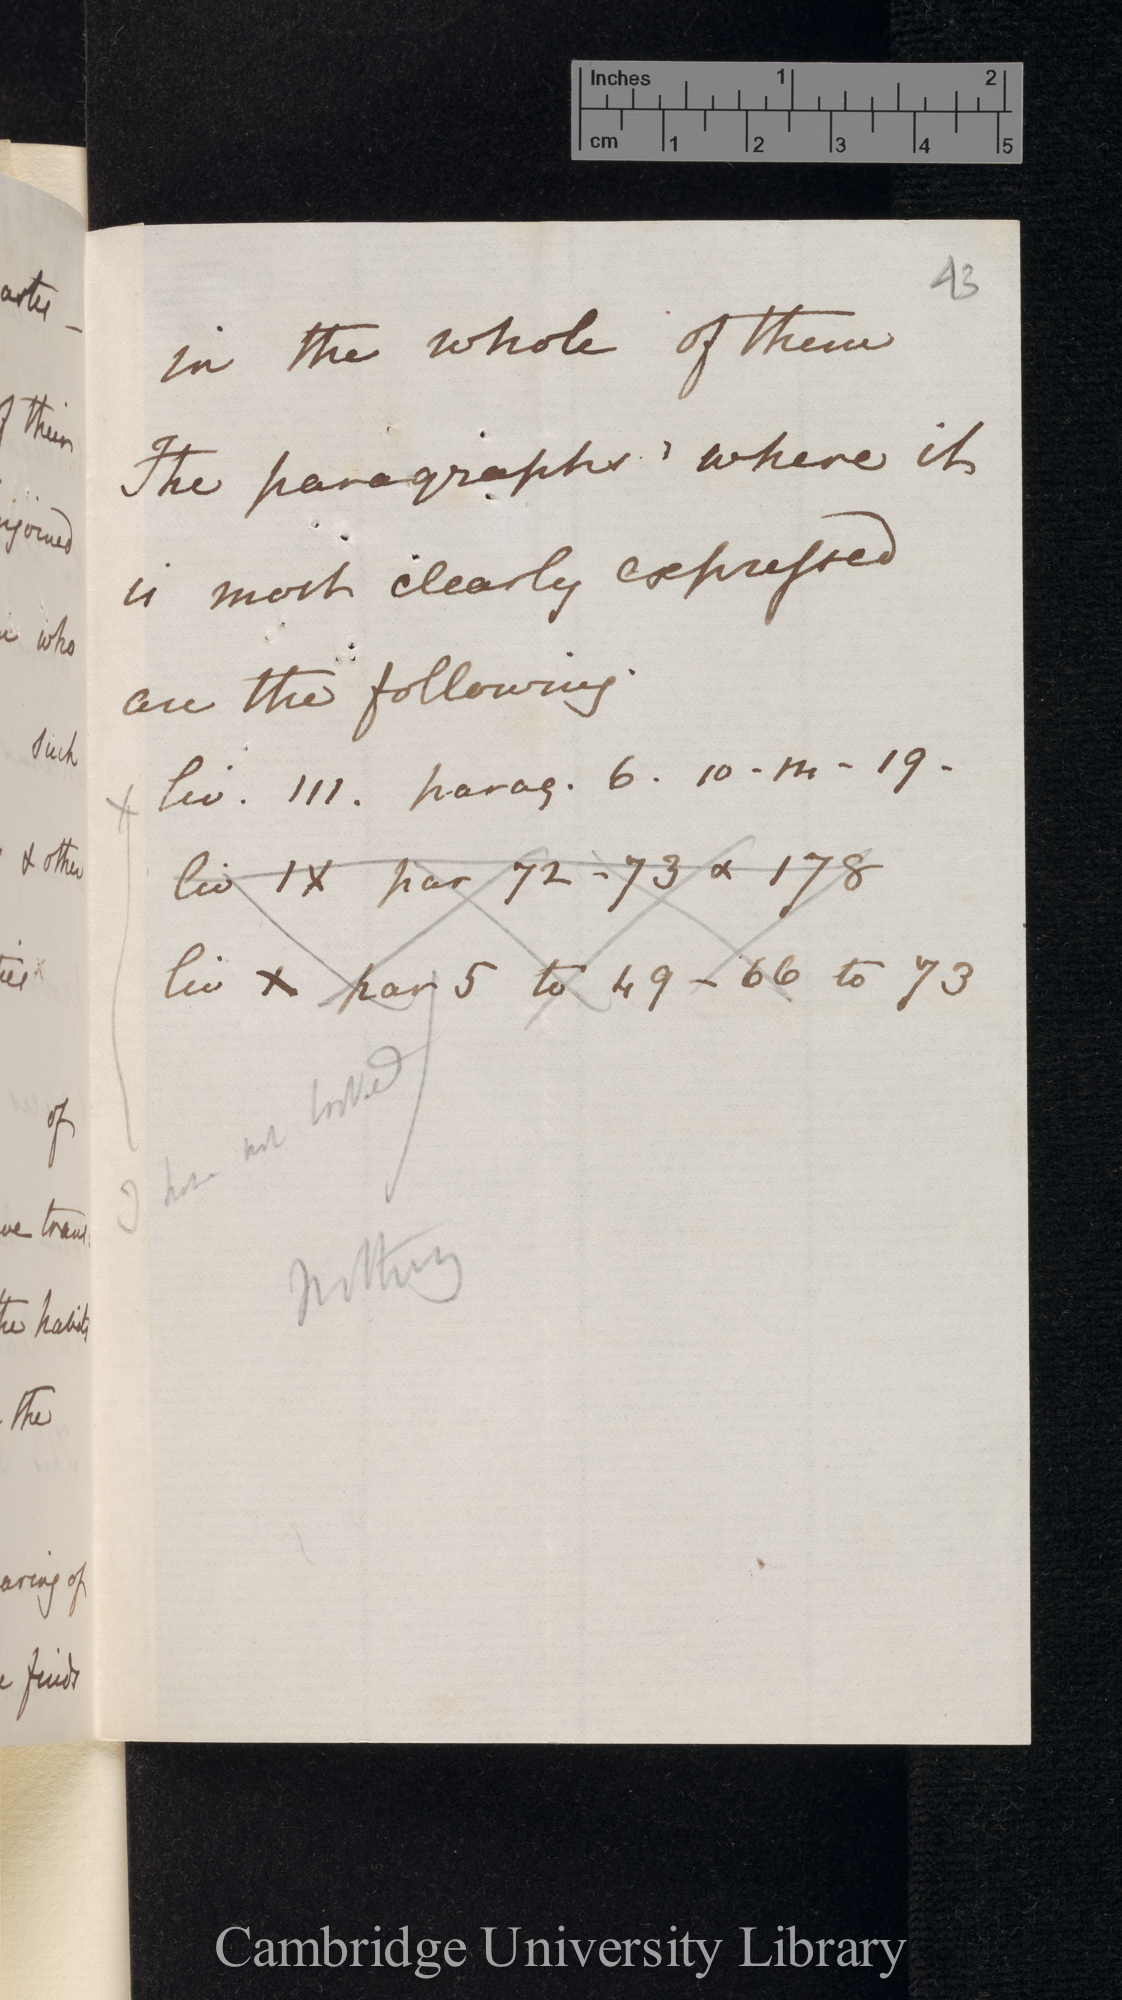 Inches 1 2
cm 1 2 3 4 5
artes –
f their
njoined
who
such
& other
ties
of
ve trans
the habits
the
aring of
e finds
43
in the whole of them
The paragraphs where it
is most clearly expressed
are the following
liv. III. parag. 6. 10 - m - 19 -
liv IX par 72 - 73 & 178
liv X par 5 to 49 - 66 to 73
I have not looked
Nothing
Cambridge University Library